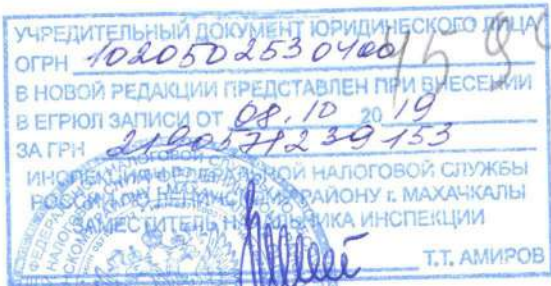 УЧРЕДИТЕЛЬНЫЙ ДОКУМЕНТ ЮРИДИЧЕСКОГО ЛИЦА
ОГРН 1020502530400
В НОВОЙ РЕДАКЦИИ ПРЕДСТАВЛЕН ПРИ ВНЕСЕНИИ
В ЕГРЮЛ ЗАПИСИ ОТ 08.10 2019
ЗА ГРН 2190571239153
ИНСПЕКЦИЯ ФЕДЕРАЛЬНОЙ НАЛОГОВОЙ СЛУЖБЫ
РОССИИ ПО ЛЕНИНСКОМУ РАЙОНУ г. МАХАЧКАЛЫ
ЗАМЕСТИТЕЛЬ НАЧАЛЬНИКА ИНСПЕКЦИИ
Т.Т. АМИРОВ